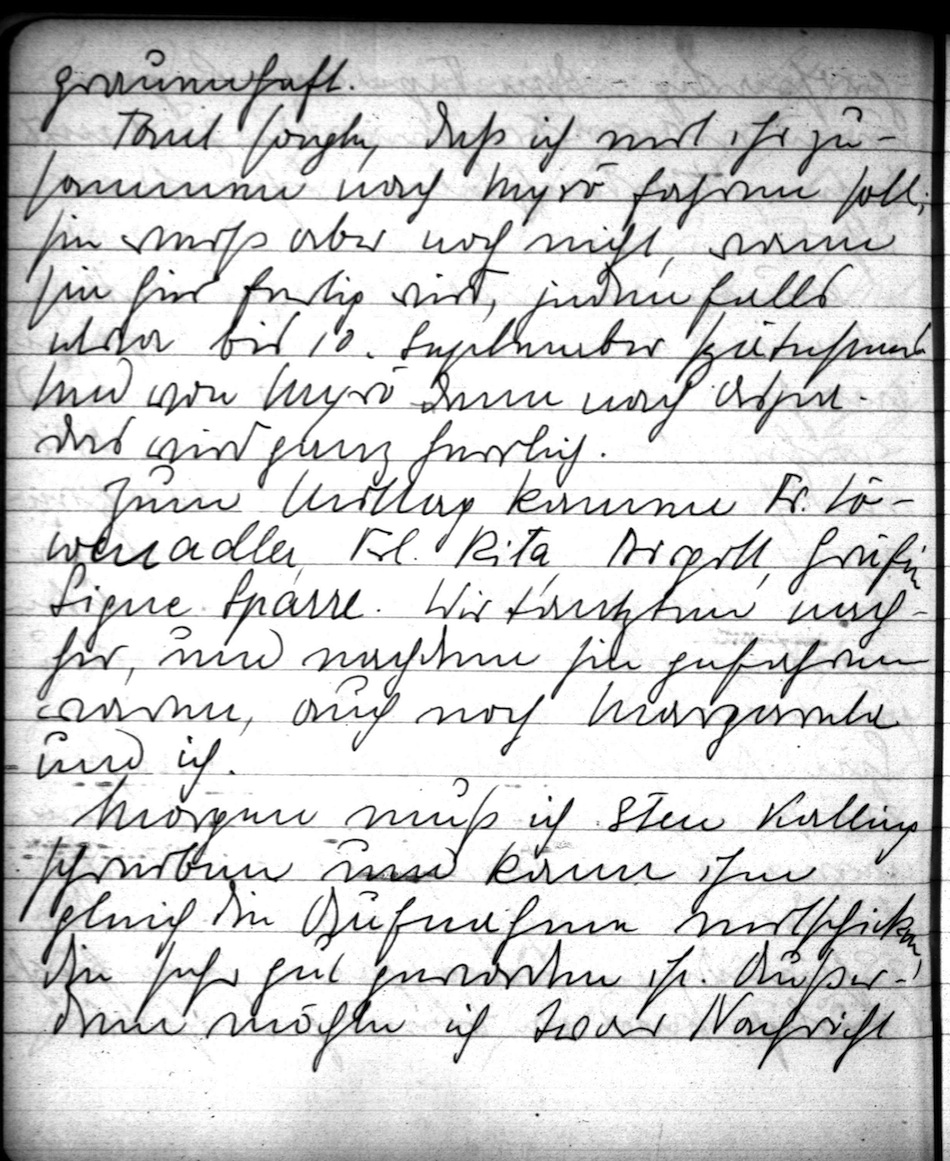 grauenhaft.
Tant sagte, daß ich mit ihr zu-
sammen nach Myrö fahren soll;
sie weiß aber noch nicht, wann
sie hier fertig wird, jedenfalls
etwa bis 10. September spätestens
Und von Myrö dann nach
das wird ganz herrlich.
Zum Mittag kamen Fr. Lö-
wenadler, Frl. Rita, Birgitt, Gräfin
Signe Sparre. Wir tanzten nach-
her, und nachdem sie gefahren
waren, auch noch Margareta
und ich.
Morgen muß ich Sten Kalling
schreiben und kann ihm
gleich die Aufnahme mitschicken,
die sehr gut geworden ist. Außer-
dem möchte ich zwar Nachricht